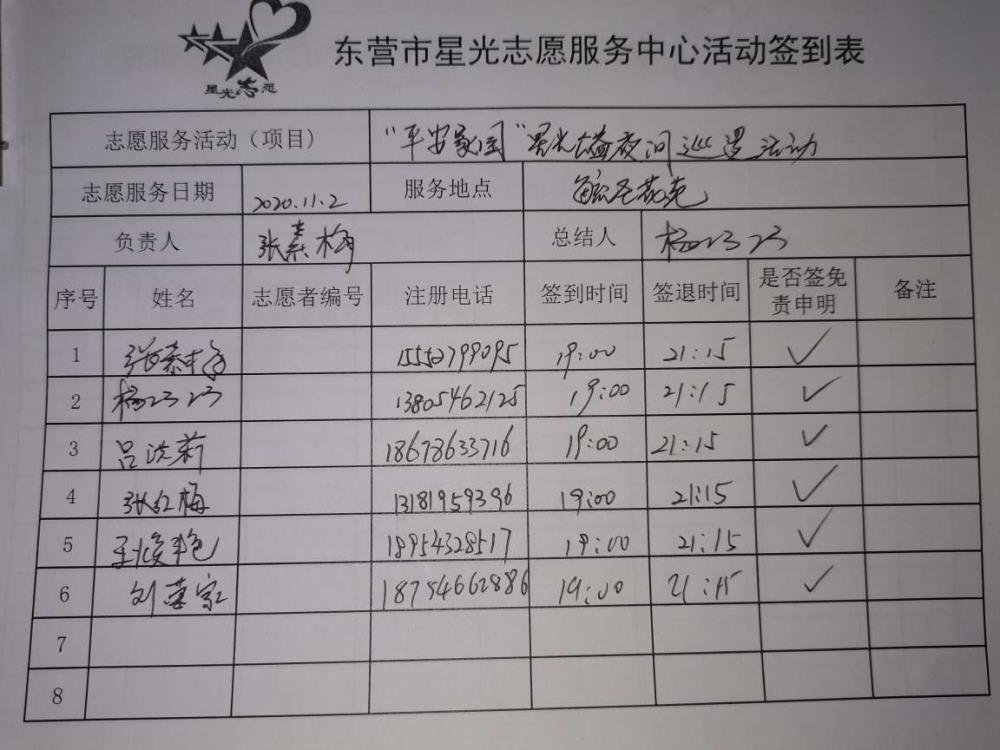 星光志愿
东营市星光志愿服务中心活动签到表
志愿服务活动（项目） “平安家园”星光益夜间巡逻活动
志愿服务日期 2020.11.2 服务地点 花苑
负责人 张素梅 总结人 杨
序号 姓名 志愿者编号 注册电话 签到时间 签退时间 是否签免责申明 备注
1 张素梅 15552799095 19:00 21:15 ✓
2 杨 13805462125 19:00 21:15 ✓
3 吕洪莉 18678633716 19:00 21:15 ✓
4 张红梅 13181959396 19:00 21:15 ✓
5 艳 18954328517 19:00 21:15 ✓
6 刘荣家 18754662886 19:00 21:15 ✓
7
8